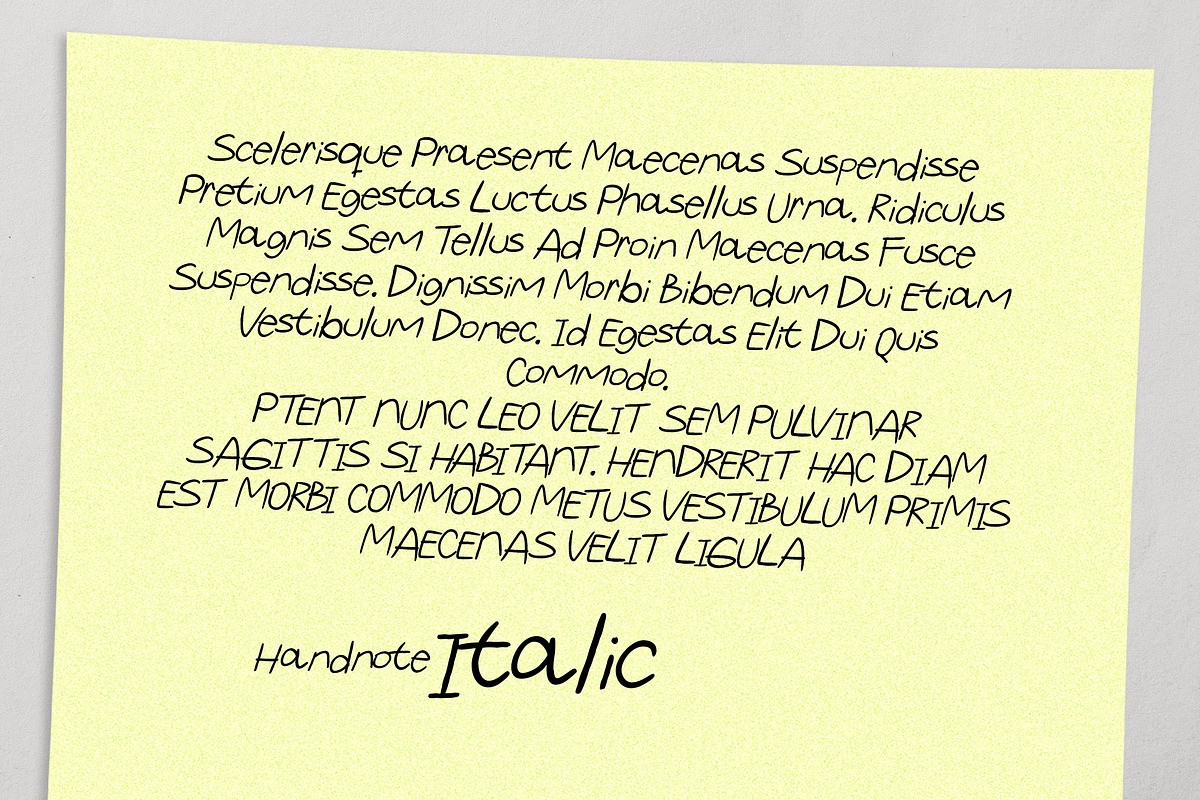 Scelerisque Praesent Maecenas Suspendisse
Pretium Egestas Luctus Phasellus Urna. Ridiculus
Magnis Sem Tellus Ad Proin Maecenas Fusce
Suspendisse. Dignissim Morbi Bibendum Dui Etiam
Vestibulum Donec. Id Egestas Elit Dui Quis
Commodo.
PTENT NUNC LEO VELIT SEM PULVINAR
SAGITTIS SI HABITANT. HENDRERIT HAC DIAM
EST MORBI COMMODO METUS VESTIBULUM PRIMIS
MAECENAS VELIT LIGULA
Handnote Italic